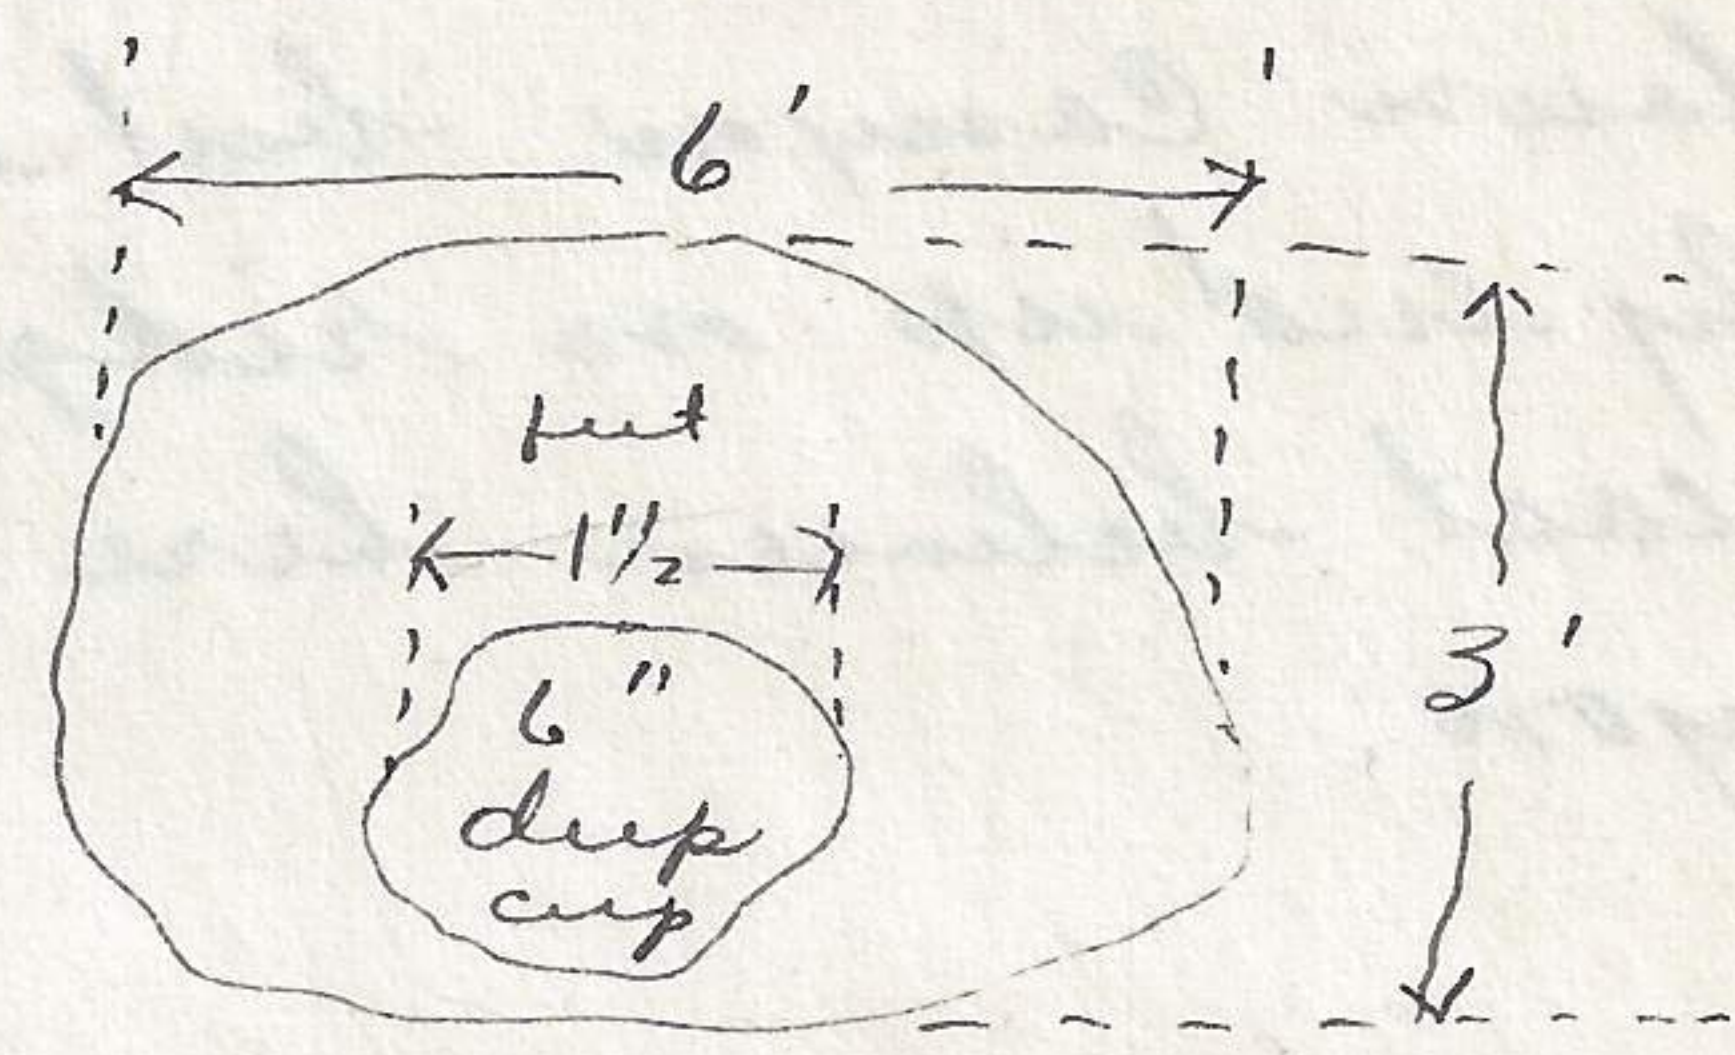 6'
feet
1 1/2"
3'
6"
deep
cup